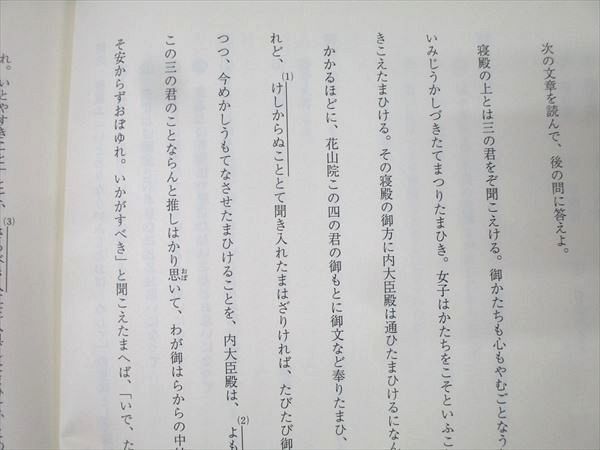 次の文章を読んで、後の問に答えよ。
寝殿の上とは三の君をぞ聞こえける。御かたちも心もやむごとなう
いみじうかしづきたてまつりたまひき。女子はかたちをこそといふこ
きこえたまひける。その寝殿の御方に内大臣殿は通ひたまひけるになん
かかるほどに、花山院この四の君の御もとに御文など奉りたまひ、
(1)
れど、けしからぬこととて聞き入れたまはざりければ、たびたび御
つつ、今めかしうもてなさせたまひけることを、内大臣殿は、よも
(2)
この三の君のことならんと推しはかり思いて、わが御はらからの中
おぼ
そ安からずおぼゆれ。いかがすべき」と聞こえたまへば、「いで、た
れ。いとやすきこと」とふ、
(3)